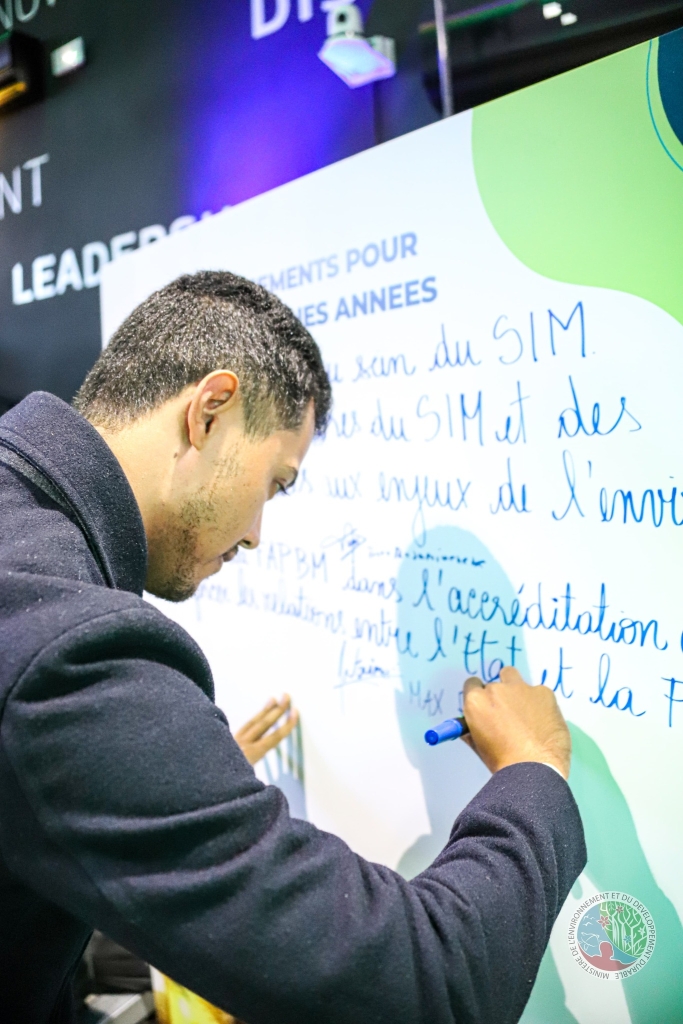 DI
NT
LEADERSH
EMENTS POUR
HES ANNEES
u sein du SIM.
res du SIM et des
s aux enjeux de l'envi
FAPBM dans l'accréditation
les relations entre l'Etat et la F
MAX
MINISTÈRE DE L'ENVIRONNEMENT ET DU DÉVELOPPEMENT DURABLE